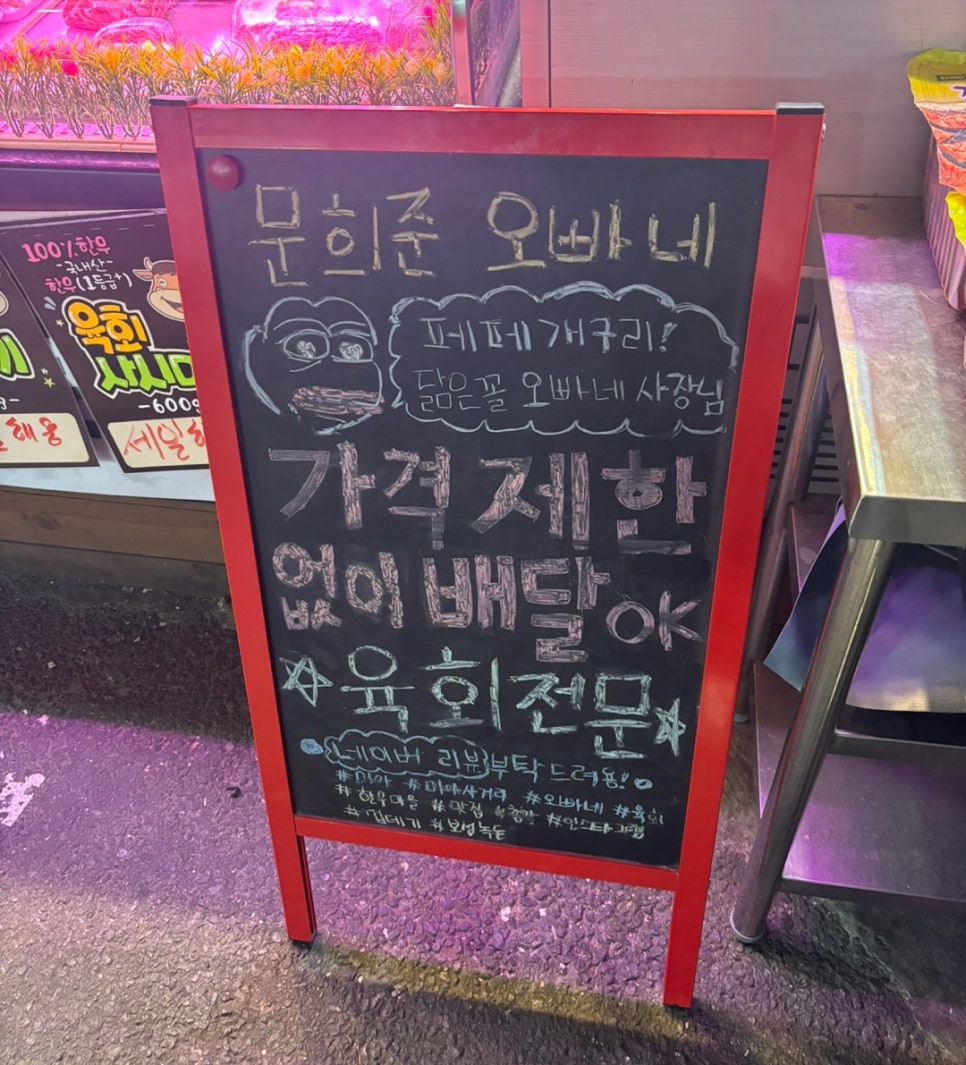 문희준 오빠네
페페개구리!
닮은꼴 오빠네 사장님
가격제한
없이 배달 OK
육회전문
네이버 리뷰부탁드려용!
#미아 #미아사거리 #오빠네 #육회
#한우마을 #맛집 #인스타그램
100% 한우
-국내산-
한우(1등급↑)
육회
사시미
-600g
세일